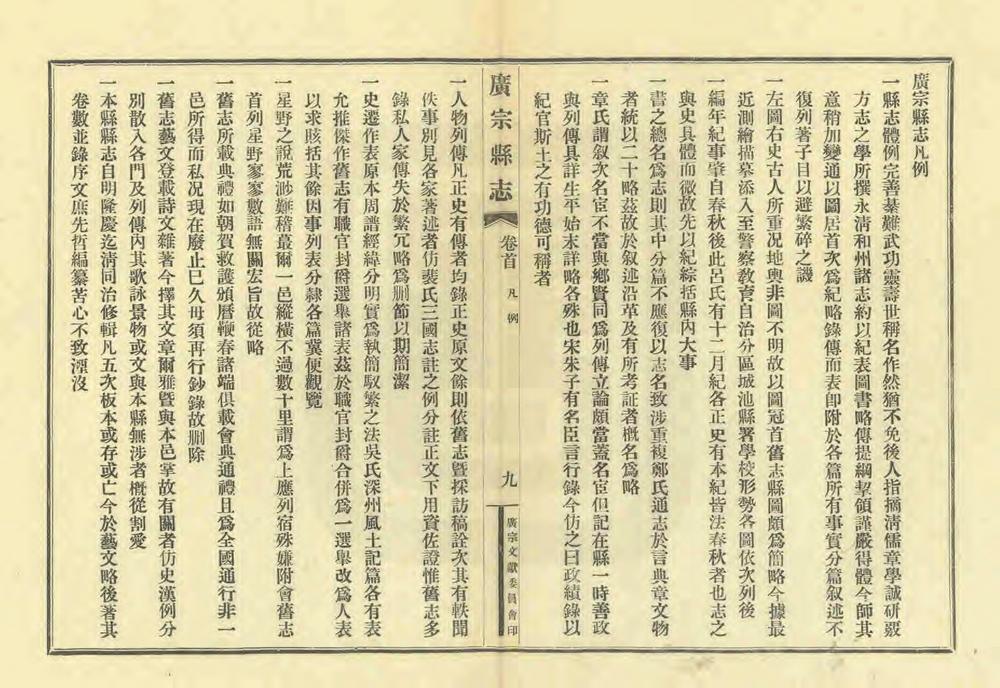 廣宗縣志凡例
一縣志體例完善綦難武功靈壽世稱名作然猶不免後人指摘清儒章學誠研覈
方志之學所撰永淸和州諸志約以紀表圖書略傳提綱挈領謹嚴得體今師其
意稍加變通以圖居首次爲紀略錄傳而表卽附於各篇所有事實分篇叙述不
復列著子目以避繁碎之譏
一左圖右史古人所重况地輿非圖不明故以圖冠首舊志縣圖頗爲簡略今據最
近測繪描摹添入至警察敎育自治分區城池縣署學校形勢各圖依次列後
一編年紀事肇自春秋後此呂氏有十二月紀各正史有本紀皆法春秋者也志之
與史具體而微故先以紀綜括縣內大事
一書之總名爲志則其中分篇不應復以志名致涉重複鄭氏通志於言典章文物
者統以二十略茲故於叙述沿革及有所考証者槪名爲略
一章氏謂叙次名宦不當與鄉賢同爲列傳立論頗當蓋名宦但記在縣一時善政
與列傳具詳生平始末詳略各殊也宋朱子有名臣言行錄今仿之曰政績錄以
紀官斯土之有功德可稱者
廣宗縣志
卷首
凡例
九
廣宗文獻委員會印
一人物列傳凡正史有傳者均錄正史原文餘則依舊志暨採訪稿詮次其有軼聞
佚事別見各家著述者仿裴氏三國志註之例分註正文下用資佐證惟舊志多
錄私人家傳失於繁冗略爲刪節以期簡潔
一史遷作表原本周譜經緯分明實爲執簡馭繁之法吳氏深州風土記篇各有表
允推傑作舊志有職官封爵選舉諸表茲於職官封爵合併爲一選舉改爲人表
以求賅括其餘因事列表分隸各篇冀便觀覽
一星野之說荒渺難稽蕞爾一邑縱橫不過數十里謂爲上應列宿殊嫌附會舊志
首列星野寥寥數語無關宏旨故從略
一舊志所載典禮如朝賀救護頒曆鞭春諸端俱載會典通禮且爲全國通行非一
邑所得而私况現在廢止已久毋須再行鈔錄故刪除
一舊志藝文登載詩文雜著今擇其文章爾雅暨與本邑掌故有關者仿史漢例分
別散入各門及列傳內其歌詠景物或文與本縣無涉者槪從割愛
一本縣縣志自明隆慶迄淸同治修輯凡五次板本或存或亡今於藝文略後著其
卷數並錄序文庶先哲編纂苦心不致湮沒